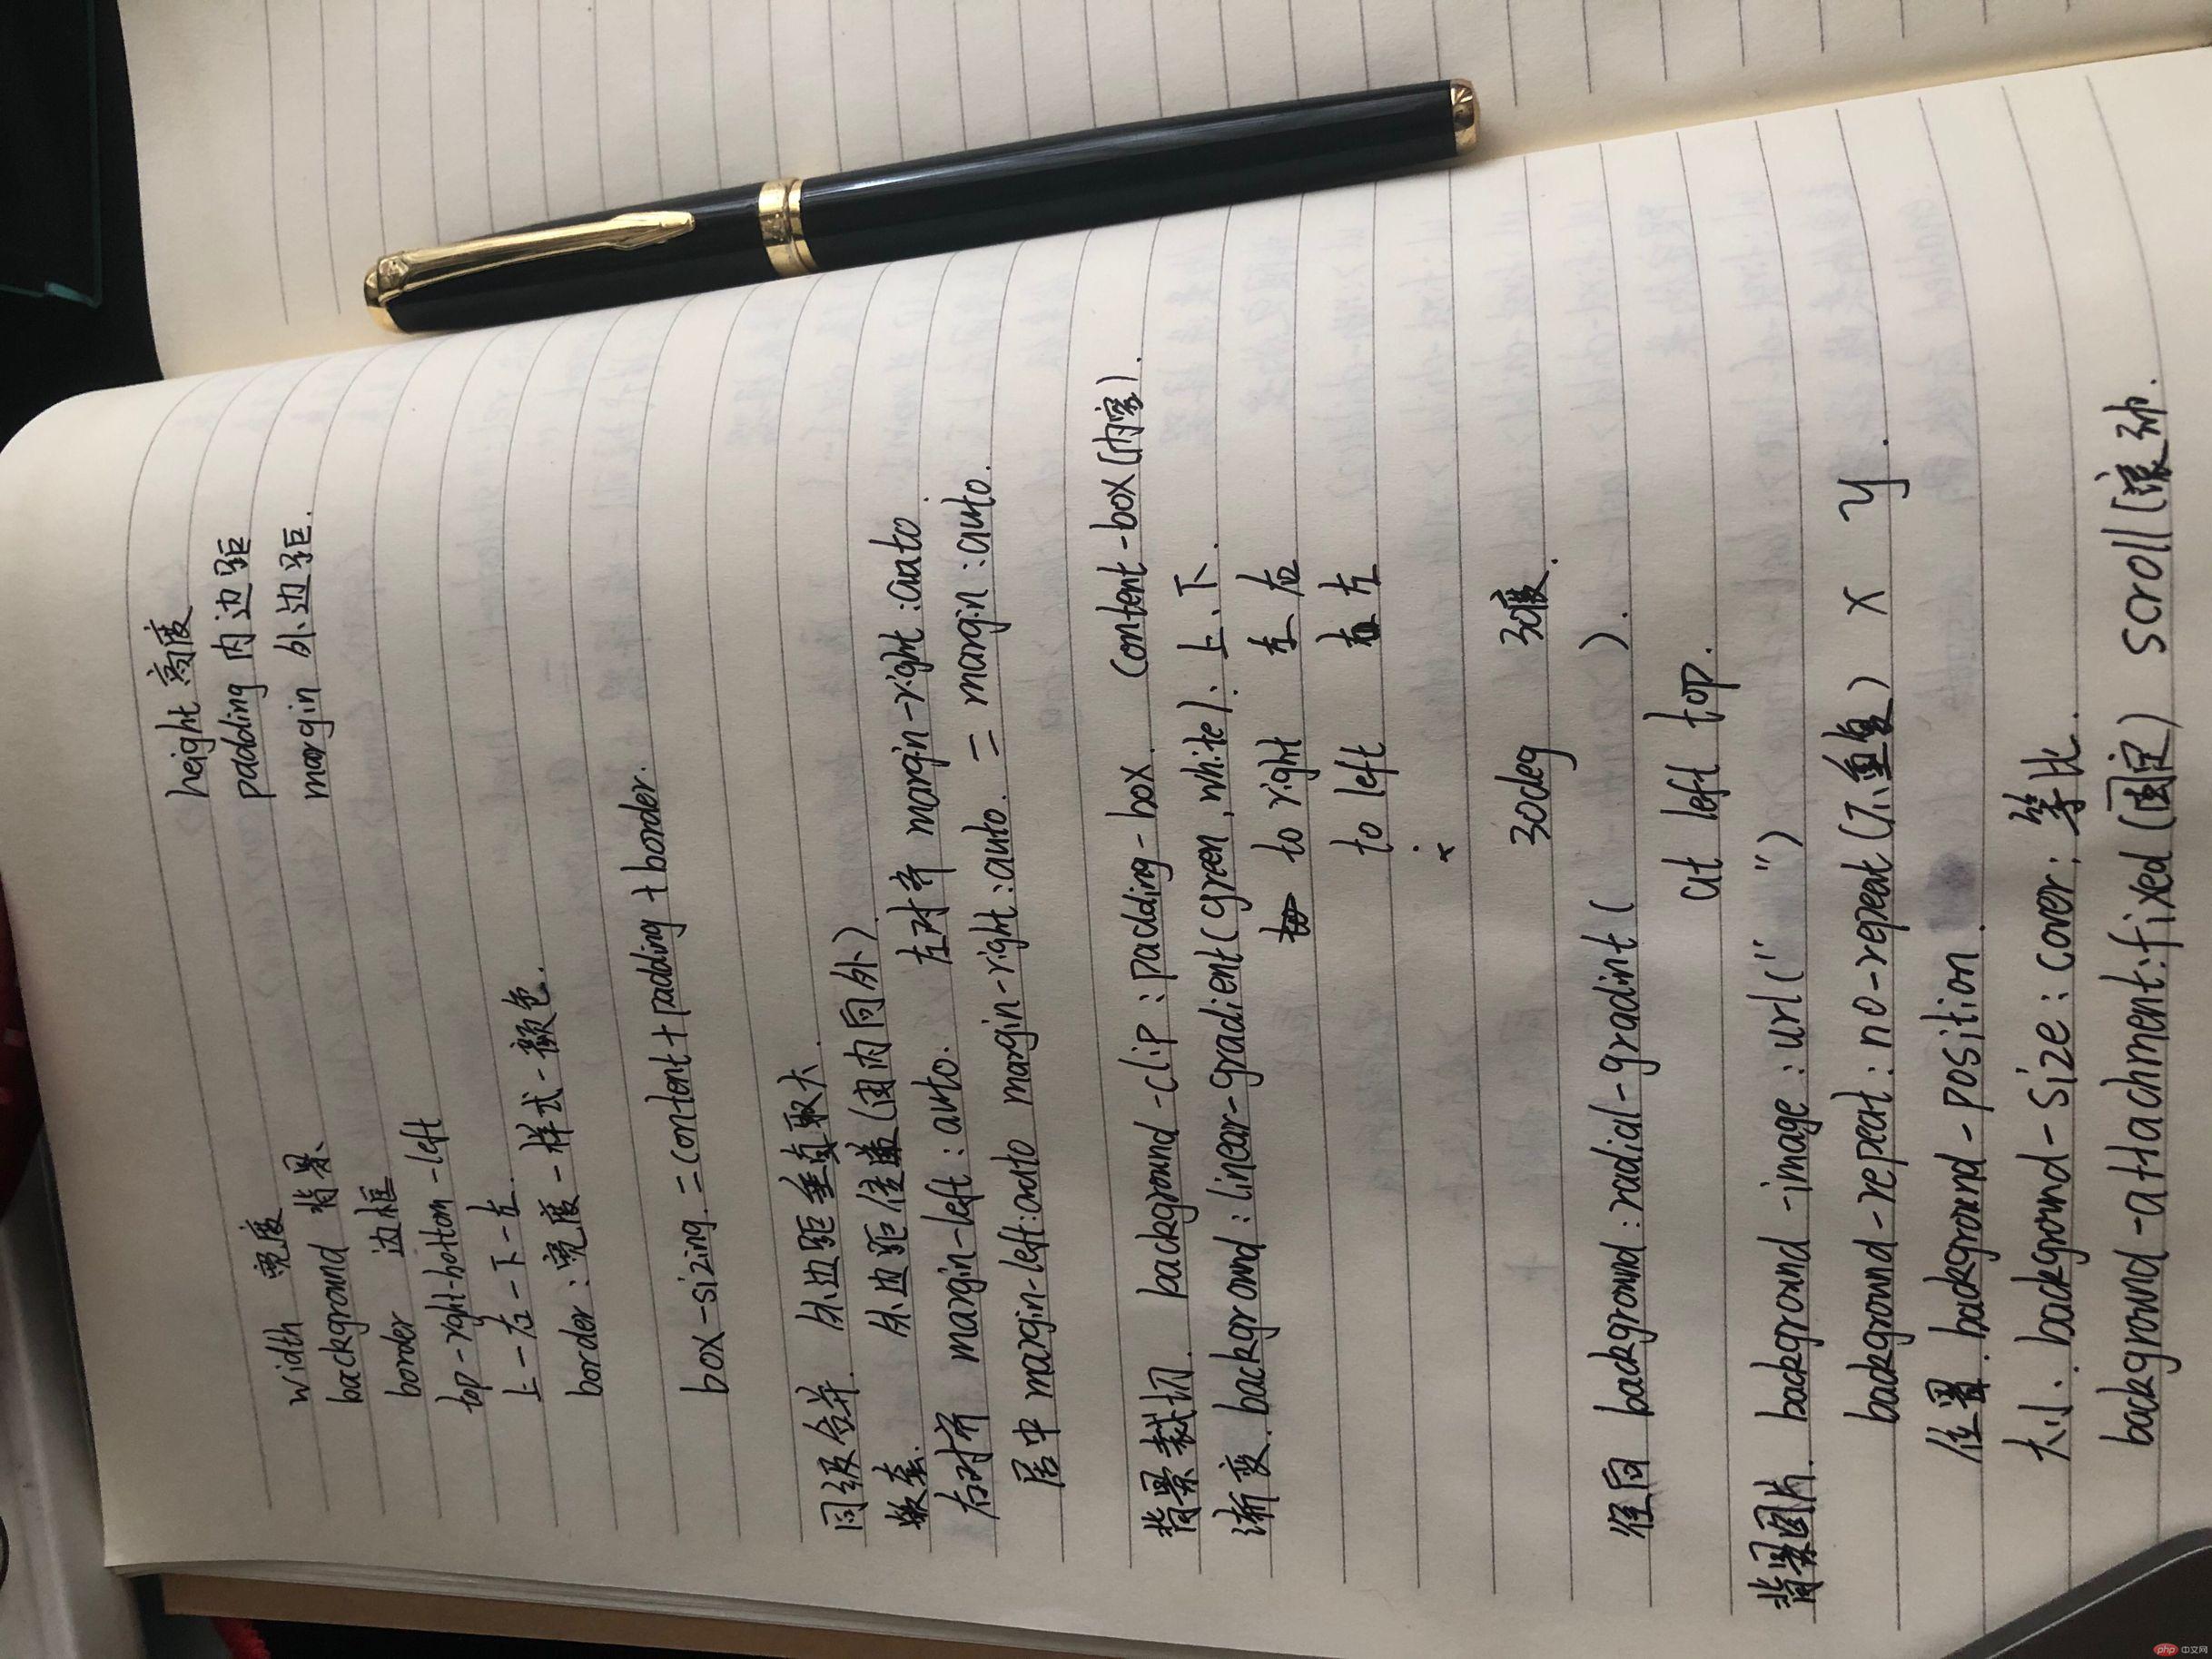 width 宽度 height 高度
background 背景 padding 内边距
border 边框 margin 外边距.
top-right-bottom-left
上-右-下-左.
border:宽度-样式-颜色.
box-sizing.=content+padding+border.
同级合并. 外边距垂直取大.
嵌套. 外边距传递(由内向外)
右对齐 margin-left:auto. 左对齐 margin-right:auto.
居中 margin-left:auto margin-right:auto. = margin:auto.
背景裁切. background-clip:padding-box. content-box(内容).
渐变. background:linear-gradient(green,white). 上.下.
to right 左 右
to left 右 左
30deg 30度.
径向 background:radial-gradint( ).
at left top.
背景图片. background-image:url(" ")
background-repeat:no-repeat(不重复) x y.
位置. background-position.
大小. background-size:cover:等比.
background-attachment:fixed(固定) scroll(滚动.
php 中文网